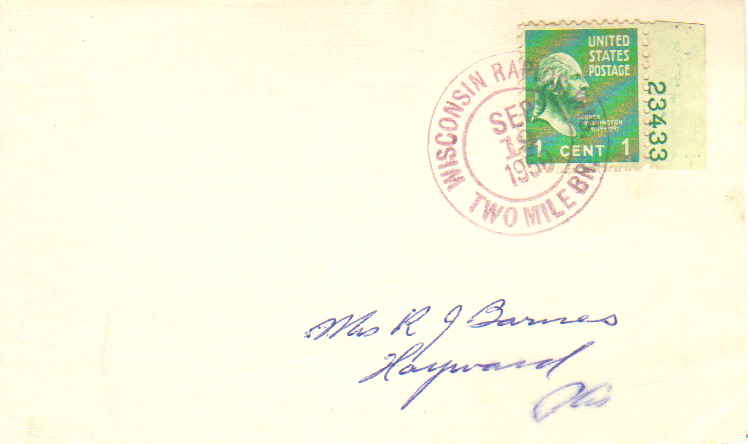 UNITED
STATES
POSTAGE
GEORGE
WASHINGTON
1 CENT 1
23433
WISCONSIN RAPIDS
SEP
1950
TWO MILE BR
Mrs R J Barnes
Hayward
Wis